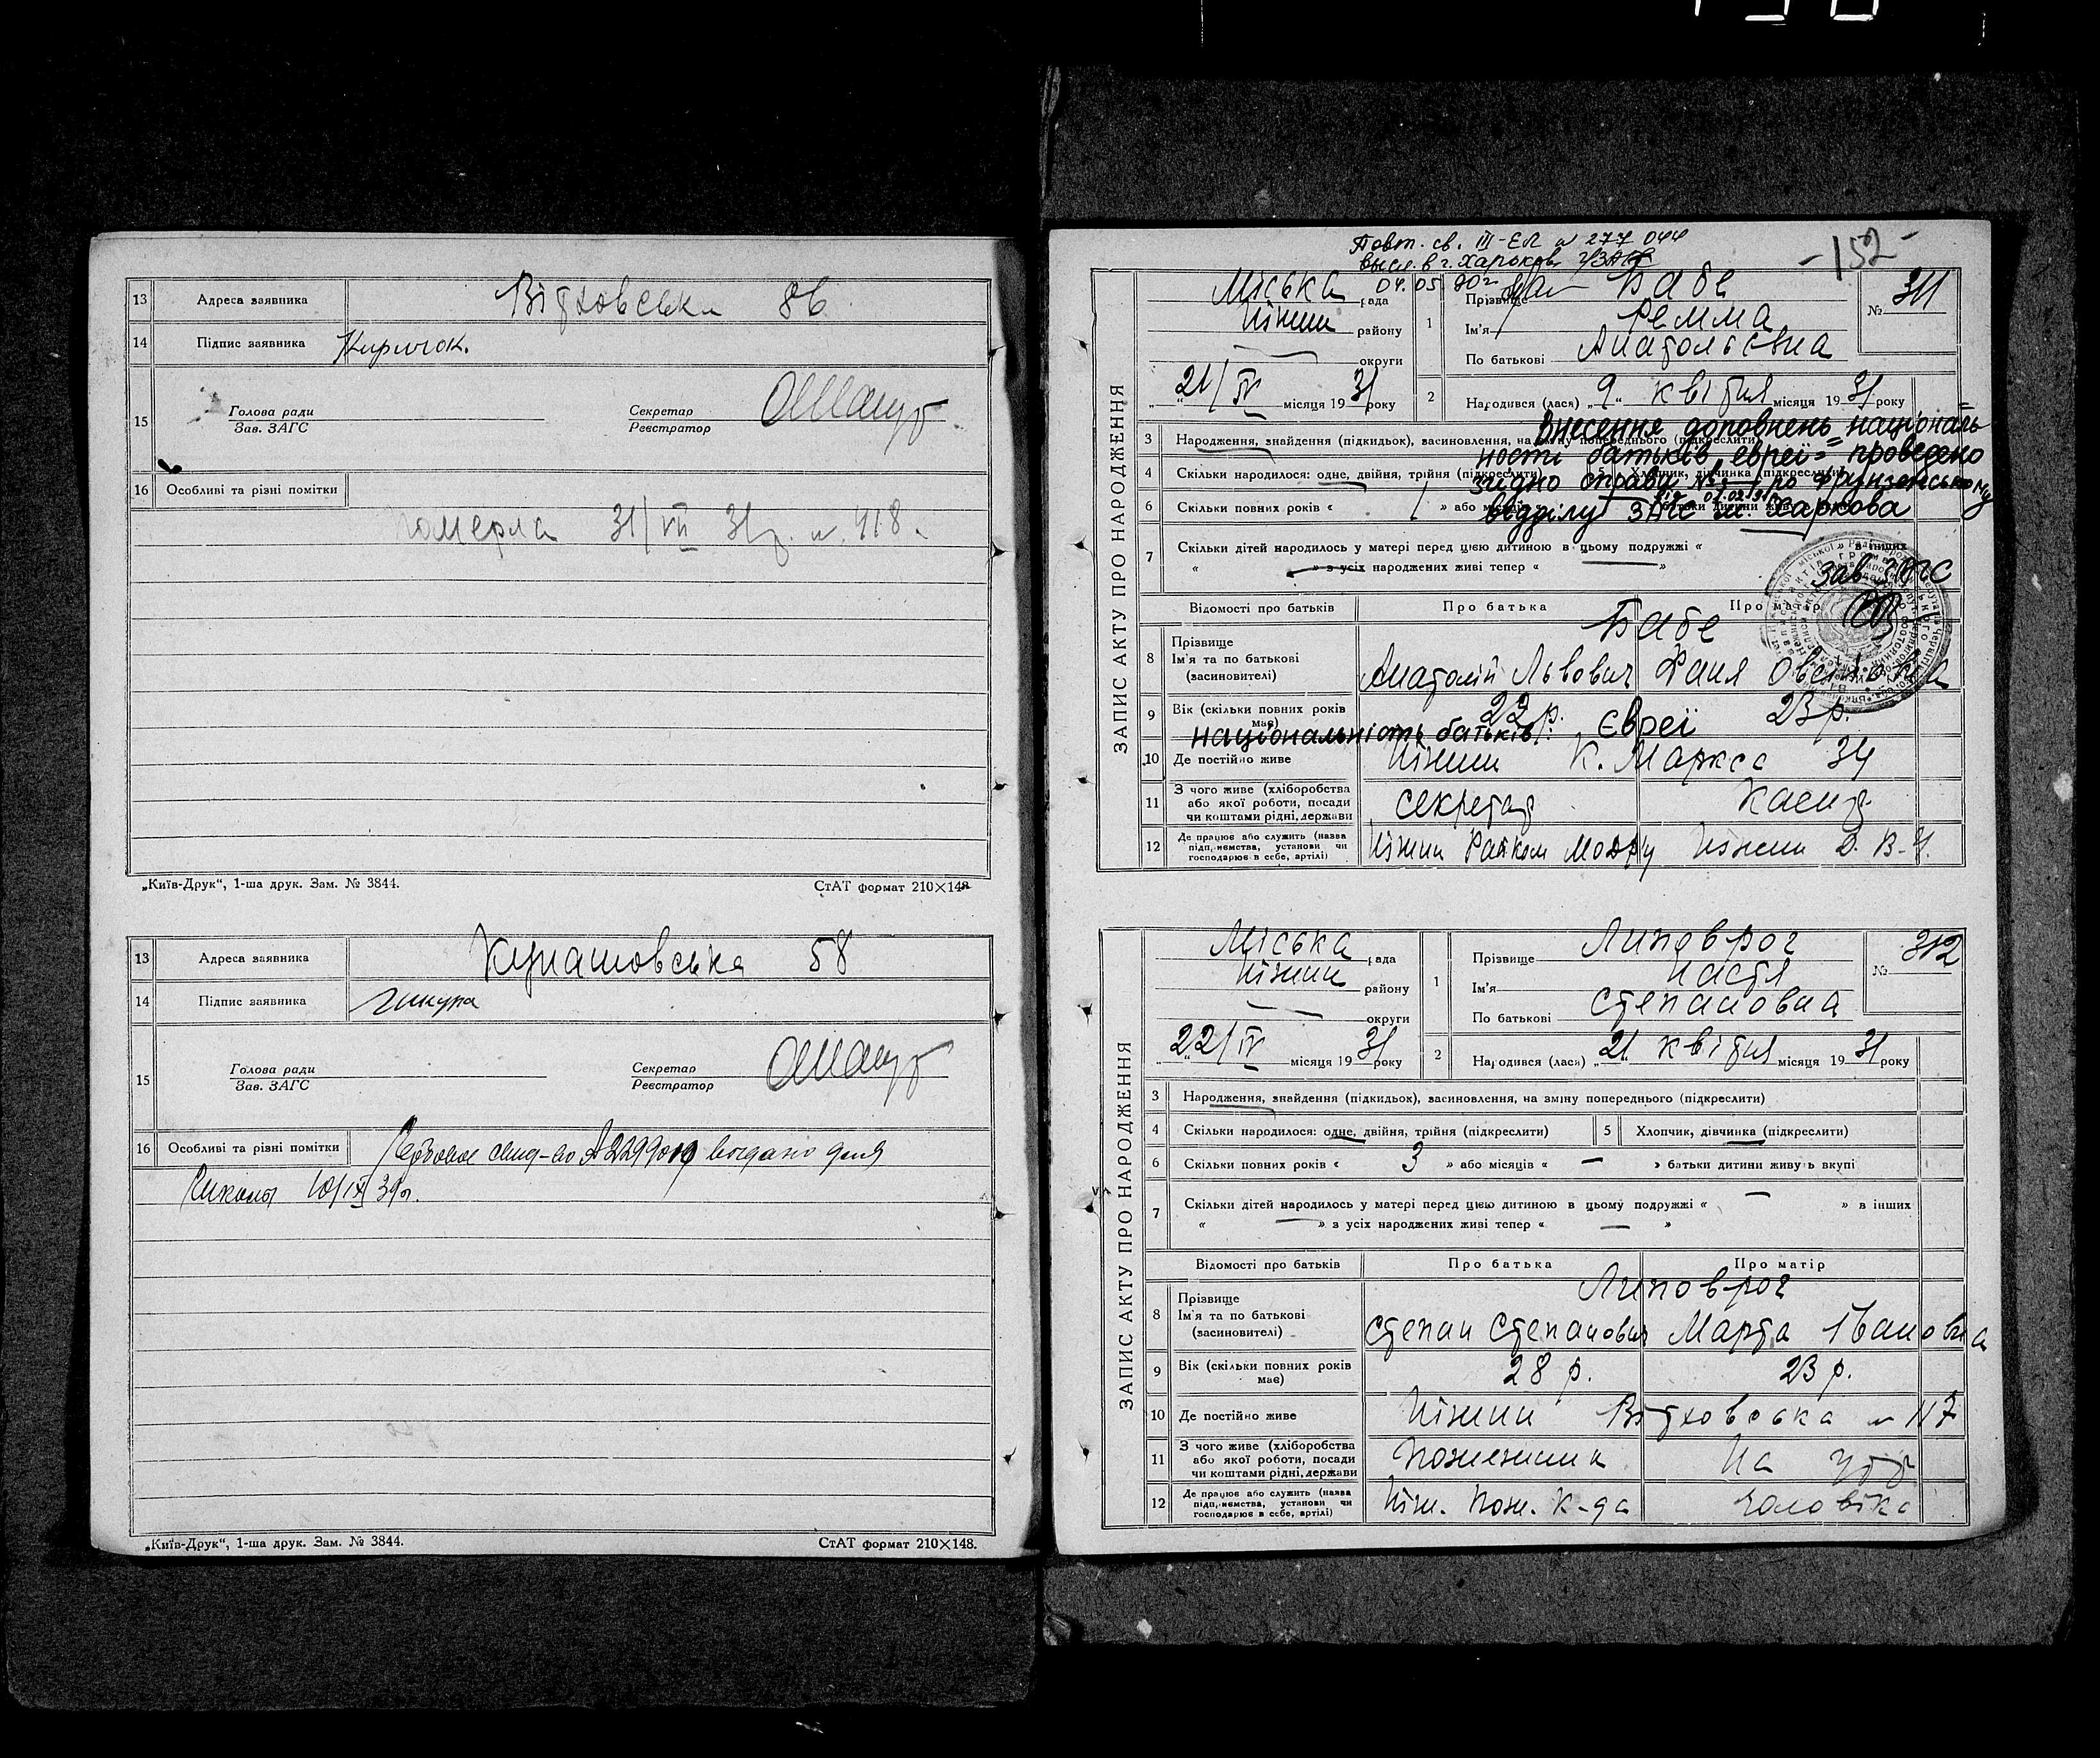 13 Адреса заявника Вітховська 86
14 Підпис заявника Киричок.
15 Голова ради Секретар
Зав. ЗАГС Реєстратор
16 Особливі та різні помітки
Померла 31/VII 31р. н. 418.
„Київ-Друк“, 1-ша друк. Зам. № 3844. СтАТ формат 210×148
13 Адреса заявника Кунашовська 58
14 Підпис заявника
15 Голова ради Секретар
Зав. ЗАГС Реєстратор
16 Особливі та різні помітки свид-во А229 выдано для
10/IX 39г.
„Київ-Друк“, 1-ша друк. Зам. № 3844. СтАТ формат 210×148.
Повт. св. III-ЕЛ № 277044
высл. в г. Харьков ЗАГС
04.05.
-152-
ЗАПИС АКТУ ПРО НАРОДЖЕННЯ
Міська рада
Ніжин району
округи
„21/IV місяця 1931 року
1 Прізвище Бабе
Ім'я Ремма
По батькові Анатольєвна
№ 311
2 Народився (лася) „9“ квітня місяця 1931 року
Внесення доповнень національ=
ності батьків „євреї“ проведено
згідно справи № 1 по Фрунзенському
від 01.02.91
відділу ЗАГС м. Харкова
Зав. ЗАГС
3 Народження, знайдення (підкидьок), васиновлення, на зміну попереднього (підкреслити)
4 Скільки народилося: одне, двійня, трійня (підкреслити) 5 Хлопчик, дівчинка (підкреслити)
6 Скільки повних років « 1 » або місяців батьки дитини живуть
7 Скільки дітей народилось у матері перед цією дитиною в цьому подружжі « » в інших
« — » з усіх народжених живі тепер « — »
Відомості про батьків Про батька Про матір
Бабе
8 Прізвище
Ім'я та по батькові
(васиновителі) Анатолій Львович Фаня
9 Вік (скільки повних років має) 22 р. 23 р.
національність батьків: Євреї
10 Де постійно живе Ніжин К. Маркса 34
11 З чого живе (хліборобства
або якої роботи, посади
чи коштами рідні, держави секретар касир
12 Де працює або служить (назва
підприємства, установи чи
господарює в себе, артілі) Ніжин Райком Ніжин
ЗАПИС АКТУ ПРО НАРОДЖЕННЯ
Міська рада
Ніжин району
округи
22/IV місяця 1931 року
1 Прізвище Липоврог
Ім'я Настя
По батькові Степановна
№ 312
2 Народився (лася) „21“ квітня місяця 1931 року
3 Народження, знайдення (підкидьок), васиновлення, на зміну попереднього (підкреслити)
4 Скільки народилося: одне, двійня, трійня (підкреслити) 5 Хлопчик, дівчинка (підкреслити)
6 Скільки повних років « 3 » або місяців « — » батьки дитини живуть вкупі
7 Скільки дітей народилось у матері перед цією дитиною в цьому подружжі « — » в інших
« — » з усіх народжених живі тепер « — »
Відомості про батьків Про батька Про матір
Липоврог
8 Прізвище
Ім'я та по батькові
(васиновителі) Степан Степанович Марта Івановна
9 Вік (скільки повних років
має) 28 р. 23 р.
10 Де постійно живе Ніжин Вітховська № 117
11 З чого живе (хліборобства
або якої роботи, посади
чи коштами рідні, держави Пожежник На утр
12 Де працює або служить (назва
підприємства, установи чи
господарює в себе, артілі) Ніж. Пож. К-да чоловіка